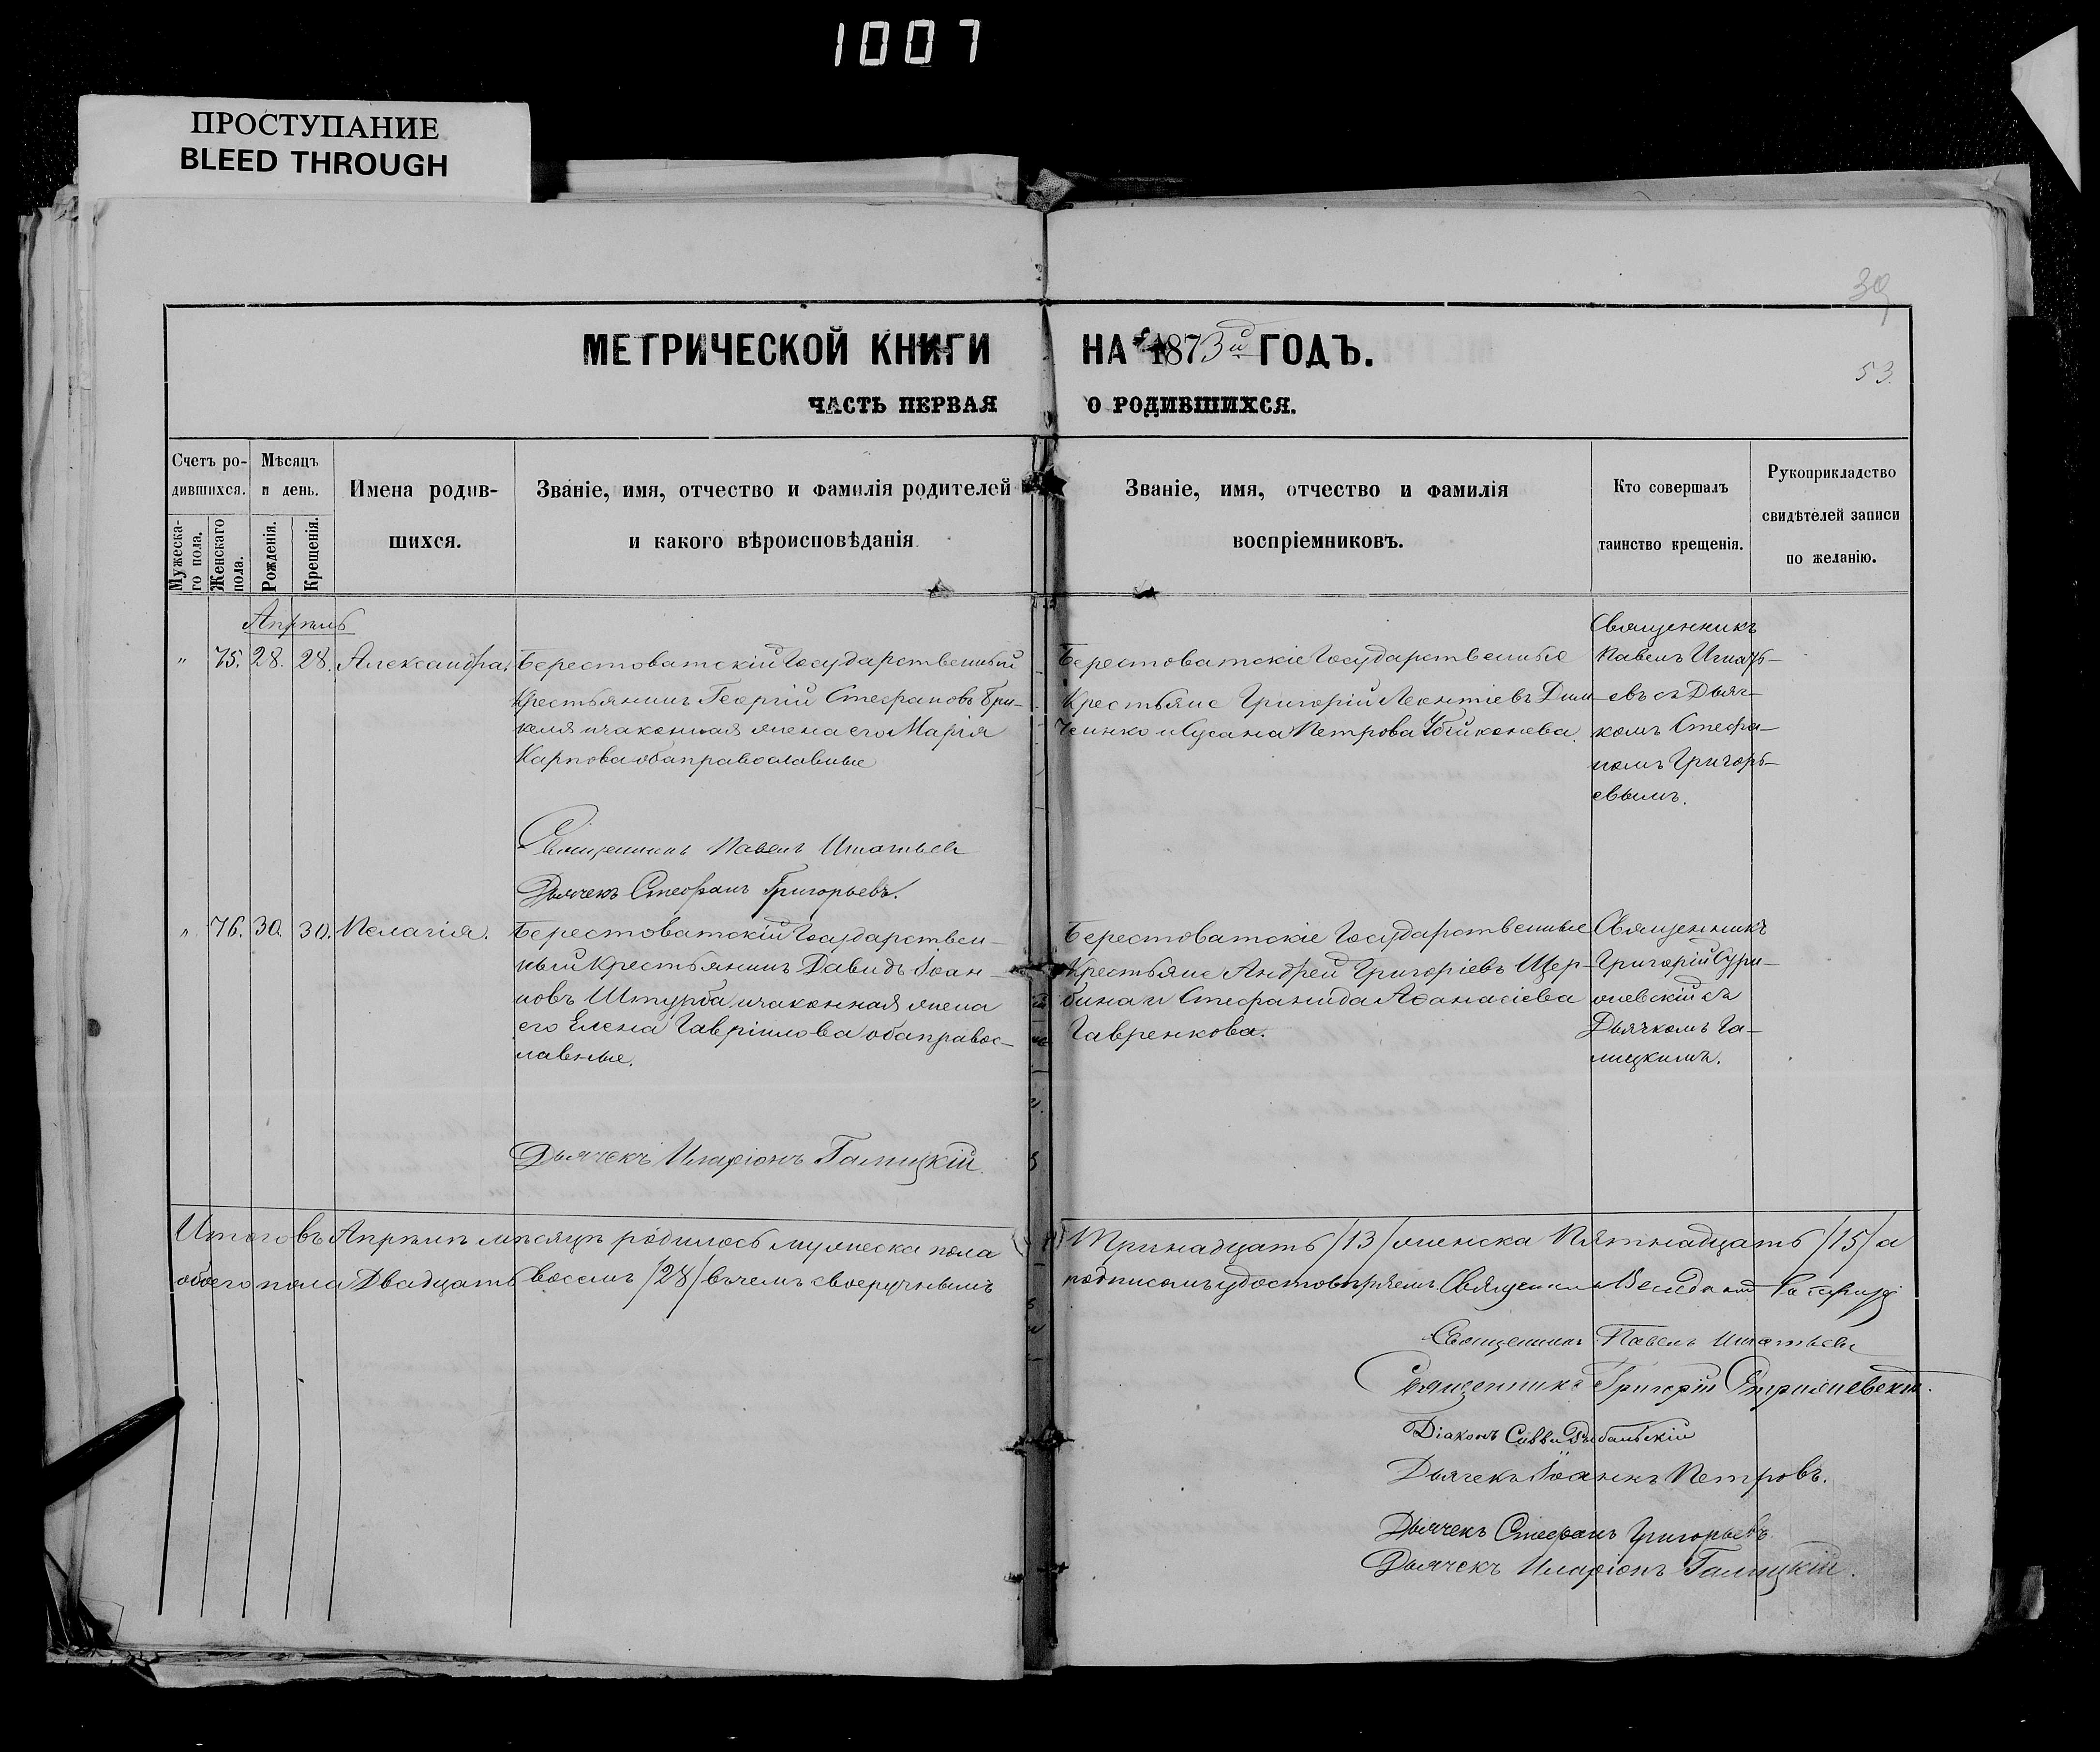 1007
ПРОСТУПАНИЕ
BLEED THROUGH
39
53.
МЕТРИЧЕСКОЙ КНИГИ НА 1873й ГОДЪ.
ЧАСТЬ ПЕРВАЯ О РОДИВШИХСЯ.
Счетъ ро-
дившихся.
Мужеска-
го пола.
Женскаго
пола.
Мѣсяцъ
и день.
Рожденія.
Крещенія.
Имена родив-
шихся.
Званіе, имя, отчество и фамилія родителей
и какого вѣроисповѣданія
Званіе, имя, отчество и фамилія
воспріемниковъ.
Кто совершалъ
таинство крещенія.
Рукоприкладство
свидѣтелей записи
по желанію.
Апрѣль
" 75. 28. 28. Александра,
Берестоватскій Государственный
Крестьянинъ Георгій Стефановъ Бри-
келя и законная жена его Марія
Карпова оба православные
Берестоватскіе Государственные
Крестьяне Григорій Леонтіевъ Дим-
ченко и Сусана Петрова
Священникъ
Павелъ Игнать-
евъ съ Дьяч-
комъ Стефа-
номъ Григорь-
евымъ.
Священникъ Павелъ Игнатьевъ
Дьячекъ Стефанъ Григорьевъ.
" 76. 30. 30. Пелагія.
Берестоватскій Государствен-
ный Крестьянинъ Давидъ Іоан-
новъ Штурба и законная жена
его Елена Гавріилова оба правос-
лавные.
Берестоватскіе Государственные
Крестьяне Андрей Григоріевъ Щер-
бина и Стефанида Аѳанасіева
Гавренкова.
Священникъ
Григорій
съ
Дьячкомъ Га-
лицкимъ.
Дьячекъ Иларіонъ Галицкій.
Итого въ Апрѣлѣ мѣсяцѣ родилось мужеска пола Тринадцать /13/ женска Пятнадцать /15/ а
обоего пола Двадцать восемь /28/ въ чемъ своеручнымъ подписомъ удостовѣряемъ. Священникъ
Священникъ Павелъ Игнатьевъ
Священникъ Григорій
Діаконъ Савва
Дьячекъ Іоаннъ Петровъ.
Дьячекъ Стефанъ Григорьевъ
Дьячекъ Иларіонъ Галицкій.